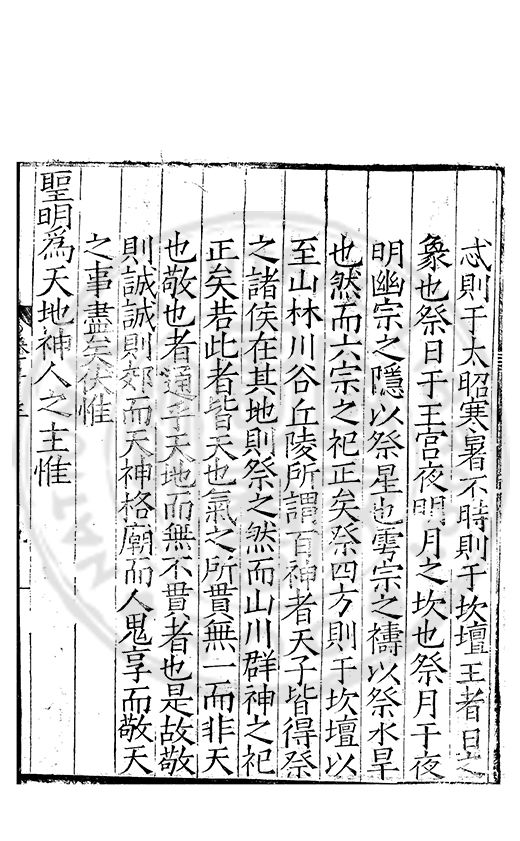 忒則于太昭寒暑不時則于坎壇王者日之
象也祭日于王宫夜明月之坎也祭月于夜
明幽宗之隱以祭星也雩宗之禱以祭水旱
也然而六宗之祀正矣祭四方則于坎壇以
至山林川谷丘陵所謂百神者天子皆得祭
之諸侯在其地則祭之然而山川群神之祀
正矣若此者皆天也氣之所貫無一而非天
也敬也者通乎天地而無不貫者也是故敬
則誠誠則郊而天神格廟而人鬼享而敬天
之事盡矣伏惟
聖明爲天地神人之主惟